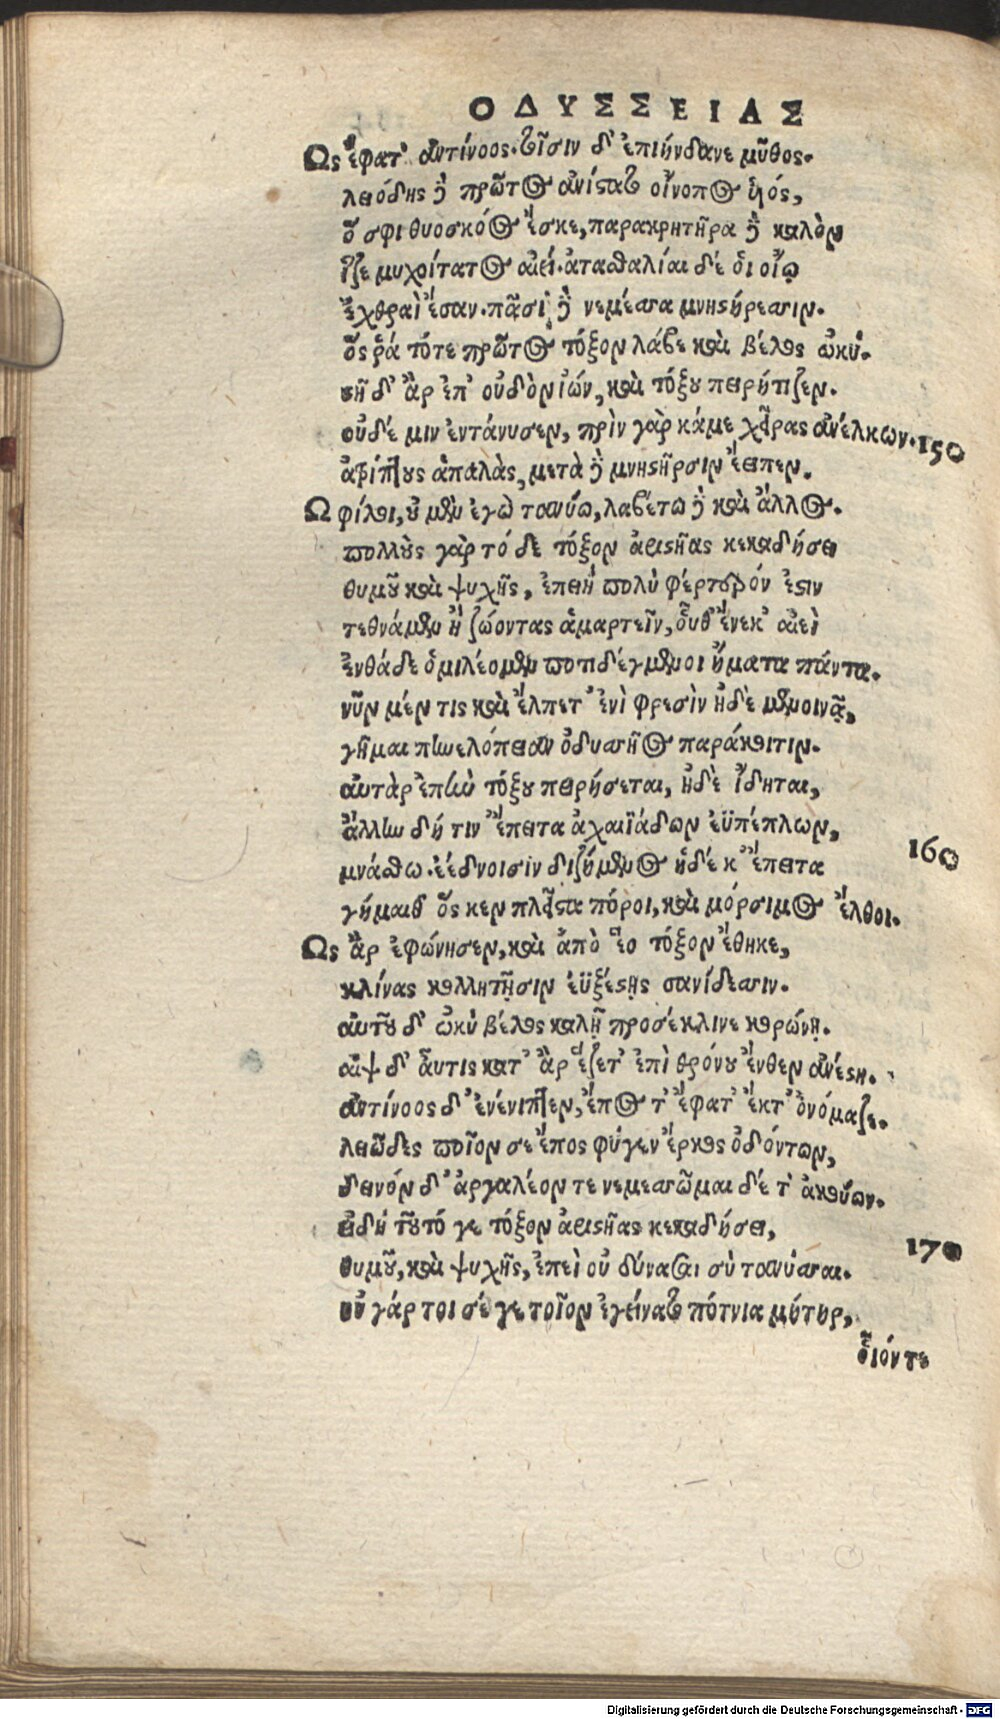 ΟΔΥΣΣΕΙΑΣ
Ως ἔφατ' ἀντίνοος. τοῖσιν δ' ἐπιήνδανε μῦθος.
λειόδης δὲ πρῶτος ἀνίστατο οἴνοπος υἱός,
ὅ σφι θυοσκόος ἔσκε, παρακρητῆρα δὲ καλὸν
ἷζε μυχοίτατος αἰεί. ἀτασθαλίαι δέ οἱ οἴῳ
ἐχθραὶ ἔσαν. πᾶσι δὲ νεμέσσα μνηστήρεσσιν.
ὅς ῥά τότε πρῶτος τόξον λάβε καὶ βέλος ὠκύ.
στῆ δ' ἂρ ἐπ' οὐδὸν ἰών, καὶ τόξου πειρήτιζεν.
οὐδέ μιν ἐντάνυσεν, πρὶν γὰρ κάμε χεῖρας ἀνέλκων. 150
ἀτρίπτους ἁπαλὰς, μετὰ δὲ μνηστῆρσιν ἔειπεν.
Ω φίλοι, οὐ μὲν ἐγὼ τανύω, λαβέτω δὲ καὶ ἄλλος.
πολλοὺς γὰρ τό δε τόξον ἀριστῆας κεκαδήσει
θυμοῦ καὶ ψυχῆς, ἐπειὴ πολὺ φέρτερόν ἐστιν
τεθνάμεν ἢ ζώοντας ἁμαρτεῖν, οὗθ' ἕνεκ' αἰεὶ
ἐνθάδε ὁμιλέομεν ποτιδέγμενοι ἤματα πάντα.
νῦν μέν τις καὶ ἔλπετ' ἐνὶ φρεσὶν ἠδὲ μενοινᾷ,
γῆμαι πηνελόπειαν ὀδυσσῆος παράκοιτιν.
αὐτὰρ ἐπὴν τόξου πειρήσεται, ἠδὲ ἴδηται,
ἄλλην δή τιν' ἔπειτα ἀχαιϊάδων εὐπέπλων, 160
μνάσθω ἐέδνοισιν διζήμενος ἡδέ κ' ἔπειτα
γήμαιθ' ὅς κεν πλεῖστα πόροι, καὶ μόρσιμος ἔλθοι.
Ως ἂρ ἐφώνησεν, καὶ ἀπὸ ἕο τόξον ἔθηκε,
κλίνας κολλητῇσιν ἐϋξέστῃς σανίδεσσιν.
αὐτοῦ δ' ὠκὺ βέλος καλῇ προσέκλινε κορώνῃ.
αἲψ δ' αὖτις κατ' ἂρ ἕζετ' ἐπὶ θρόνου ἔνθεν ἀνέστη.
ἀντίνοος δ' ἐνένιπτεν, ἔπος τ' ἔφατ' ἔκτ' ὀνόμαζε.
λειῶδες ποῖον σε ἔπος φύγεν ἕρκος ὀδόντων,
δεινόν δ' ἀργαλέον τε νεμεσσῶμαι δέ τ' ἀκούων.
εἰ δὴ τοῦτό γε τόξον ἀριστῆας κεκαδήσει, 170
θυμοῦ, καὶ ψυχῆς, ἐπεὶ οὐ δύνασαι σὺ τανύσσαι.
οὐ γάρ τοι σέ γε τοῖον ἐγείνατο πότνια μήτηρ,
οἷόν τε
Digitalisierung gefördert durch die Deutsche Forschungsgemeinschaft - DFG